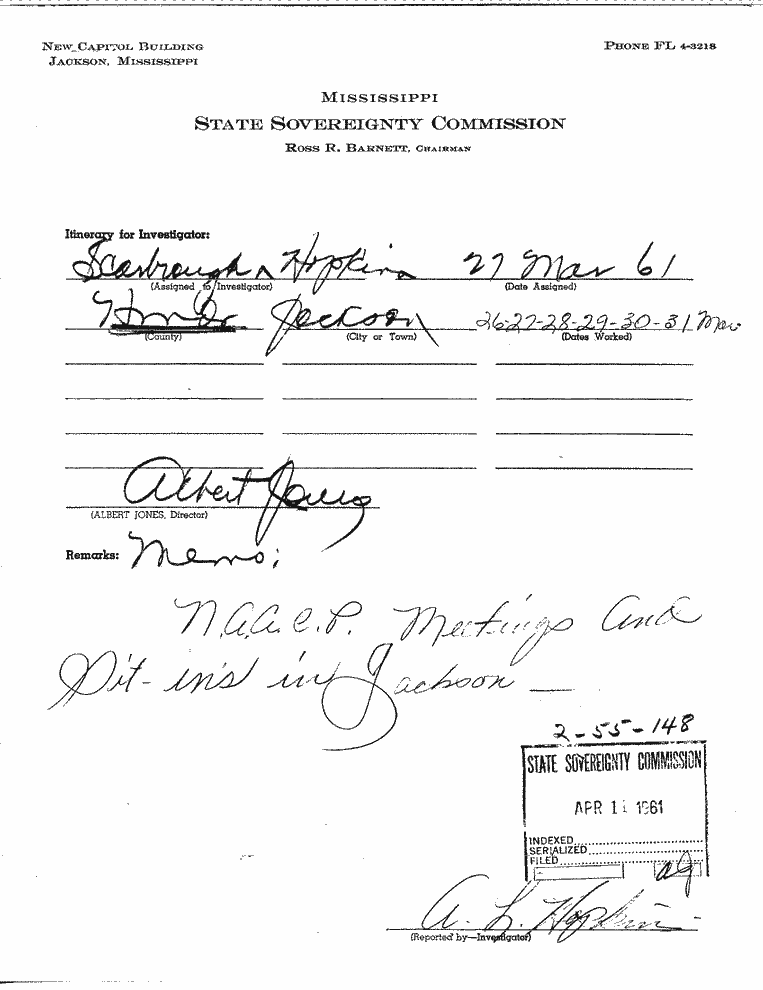 NEW CAPITOL BUILDING
JACKSON, MISSISSIPPI
PHONE FL 4-3218
MISSISSIPPI
STATE SOVEREIGNTY COMMISSION
ROSS R. BARNETT, CHAIRMAN
Itinerary for Investigator:
Scarbrough & Hopkins 27 Mar 61
(Assigned to Investigator) (Date Assigned)
Hinds Jackson 26-27-28-29-30-31 Mar.
(County) (City or Town) (Dates Worked)
Albert Jones
(ALBERT JONES, Director)
Remarks: Memo:
N.A.A.C.P. Meetings and
Sit-in's in Jackson —
2-55-148
STATE SOVEREIGNTY COMMISSION
APR 11 1961
INDEXED
SERIALIZED
FILED
aj
A. L. Hopkins
(Reported by—Investigator)